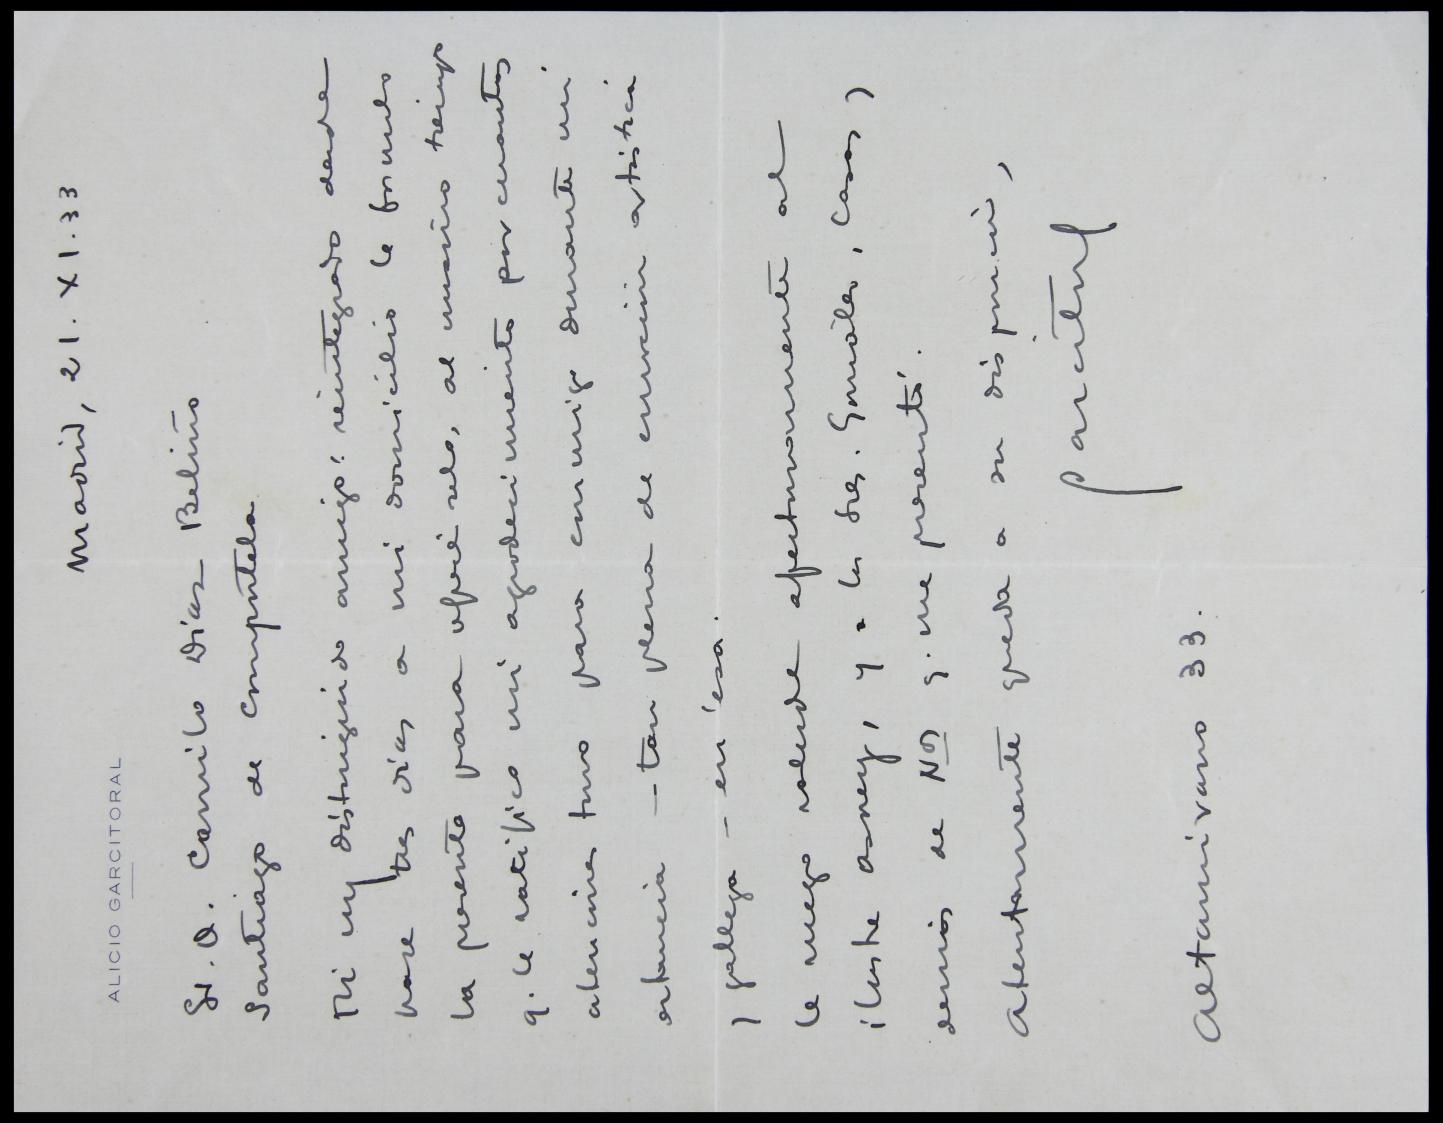 ALICIO GARCITORAL
Madrid, 21. XI. 33
Sr. D. Camilo Díaz Baliño
Santiago de Compostela
Mi muy distinguido amigo: reintegrado desde
hace tres días a mi domicilio le formulo
la presente para ofrecérselo, al mismo tiempo
q. le ratifico mi agradecimiento por cuantas
atenciones tuvo para conmigo durante mi
estancia — tan plena de emoción artística
y gallega — en ésa.
Le ruego salude afectuosamente al
ilustre Asorey, y a los Sres. Casas y
demás de Nós q. me presentó.
Atentamente queda a su disposición,
Garcitoral
Altamirano 33.